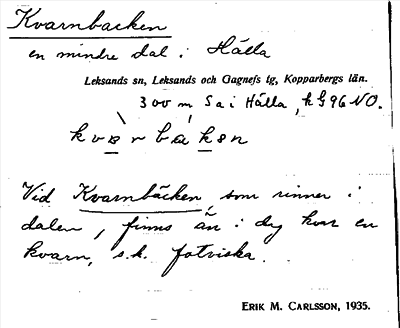 Kvarnbacken
en mindre dal i Hälla
Leksands sn, Leksands och Gagnefs tg, Kopparbergs län.
300 m S a i Hälla, k § 96 NO.
kvarnbakən
Vid Kvarnbäcken, som rinner i
dalen, finns än i dag kvar en
kvarn, s.k. fotviska.
ERIK M. CARLSSON, 1935.